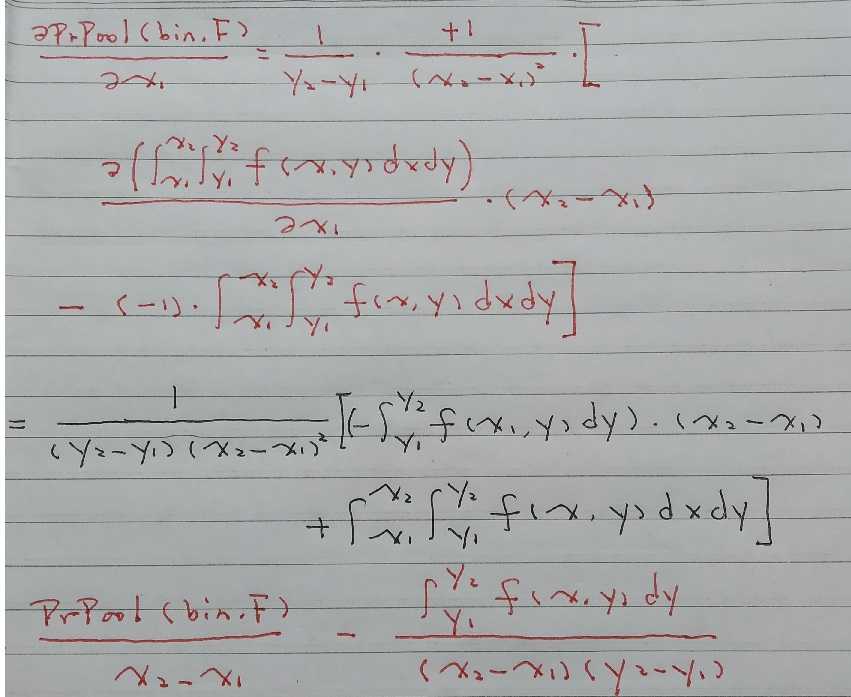 ∂PrPool(bin,F)/∂x₁ = 1/(y₂-y₁) · +1/(x₂-x₁)² · [
∂(∫_{x₁}^{x₂}∫_{y₁}^{y₂} f(x,y)dxdy)/∂x₁ · (x₂-x₁)
- (-1) · ∫_{x₁}^{x₂}∫_{y₁}^{y₂} f(x,y)dxdy]
= 1/((y₂-y₁)(x₂-x₁)²) [(-∫_{y₁}^{y₂} f(x₁,y)dy) · (x₂-x₁)
+ ∫_{x₁}^{x₂}∫_{y₁}^{y₂} f(x,y)dxdy]
PrPool(bin,F)/(x₂-x₁) - ∫_{y₁}^{y₂} f(x,y)dy/((x₂-x₁)(y₂-y₁))